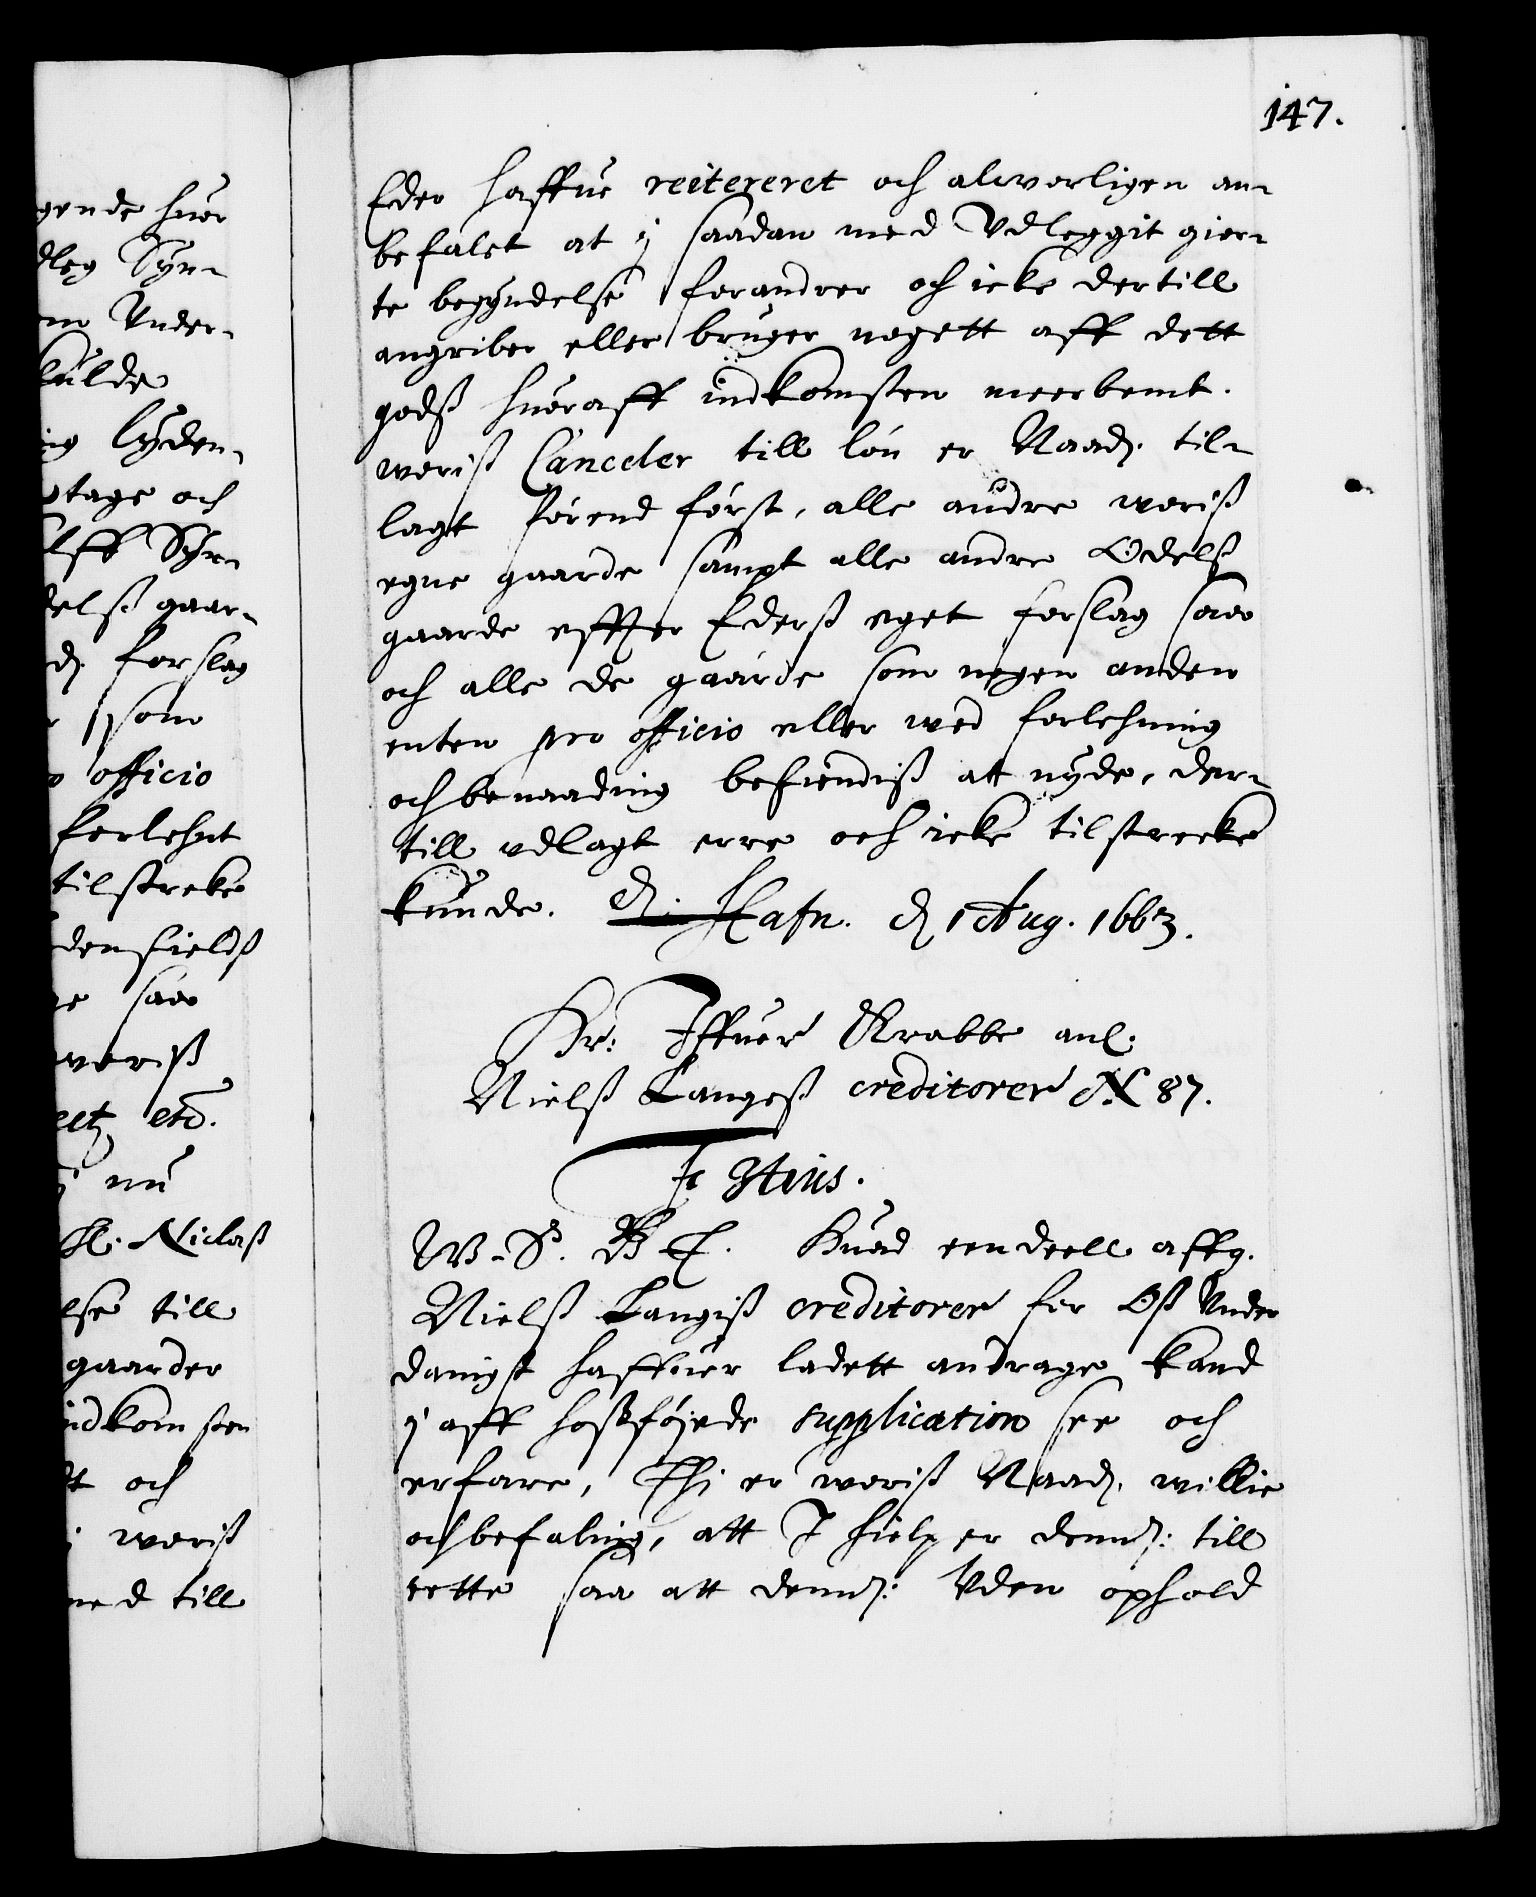 147.
gende huer
dleg Syn-
Vnder-
kulde
lyden-
tage och
Syn-
delß gaar-
forslag
som
officio
forlehnt
tilstreke
denfieldß
saa
woriß
etc.
nu
Hl. Niclaß
lse till
gaarder
indkomsten
och
woriß
med till
Eder haffue reitereret och alworligen an-
befalet at y saadan med Vdleggit gior-
te begyndelse forandrer och icke dertill
angriber eller bruger nogett aff dett
godß huoraff indkomsten meerbemt.
woriß Canceler till lön er Naad. til-
lagt förend först, alle andre woriß
egne gaarde sampt alle andre Odelß
gaarde effter Ederß eget forslag saa
och alle de gaarde som nogen anden
enten pro officio eller wed forlehning
och benaading befiendiß att nyde, der-
till udlagt erre och icke tilstrecke
kunde. d. Hafn. d 1 Aug. 1663.
Hr: Iffuer Krabbe anl.
Nielß Langeß creditorer N 87.
F 3tius.
W. S. B T. Huad een deell affg.
Nielß Langiß creditorer for Oß Vnder
danigst haffuer ladett andrage kand
y aff hoßföjede supplication see och
erfare, Thi er woriß Naad. willie
och befaling, att I hielper demd: till
rette saa att demd: Vden ophold